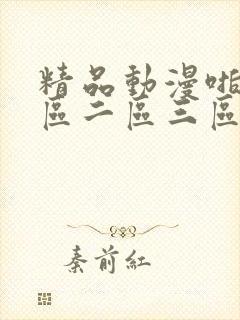 精品動漫啪
區二區三區
秦前紅